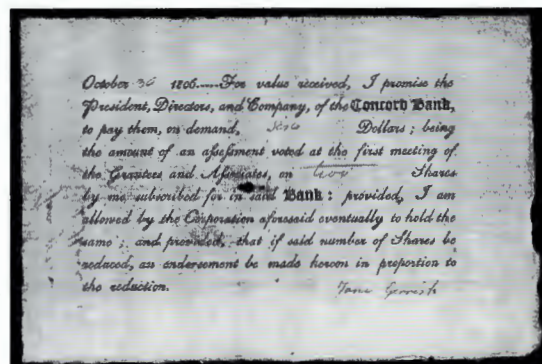 October 30 1806.----For value received, I promise the
President, Directors, and Company, of the Concord Bank,
to pay them, on demand, Dollars ; being
the amount of an aſseſsment voted at the first meeting of
the Grantees and Aſsociates, on two Shares
by me subscribed for in said Bank : provided, I am
allowed by the Corporation aforesaid eventually to hold the
same ; and provided, that if said number of Shares be
reduced, an endorsement be made hereon in proportion to
the reduction.
Gerrish